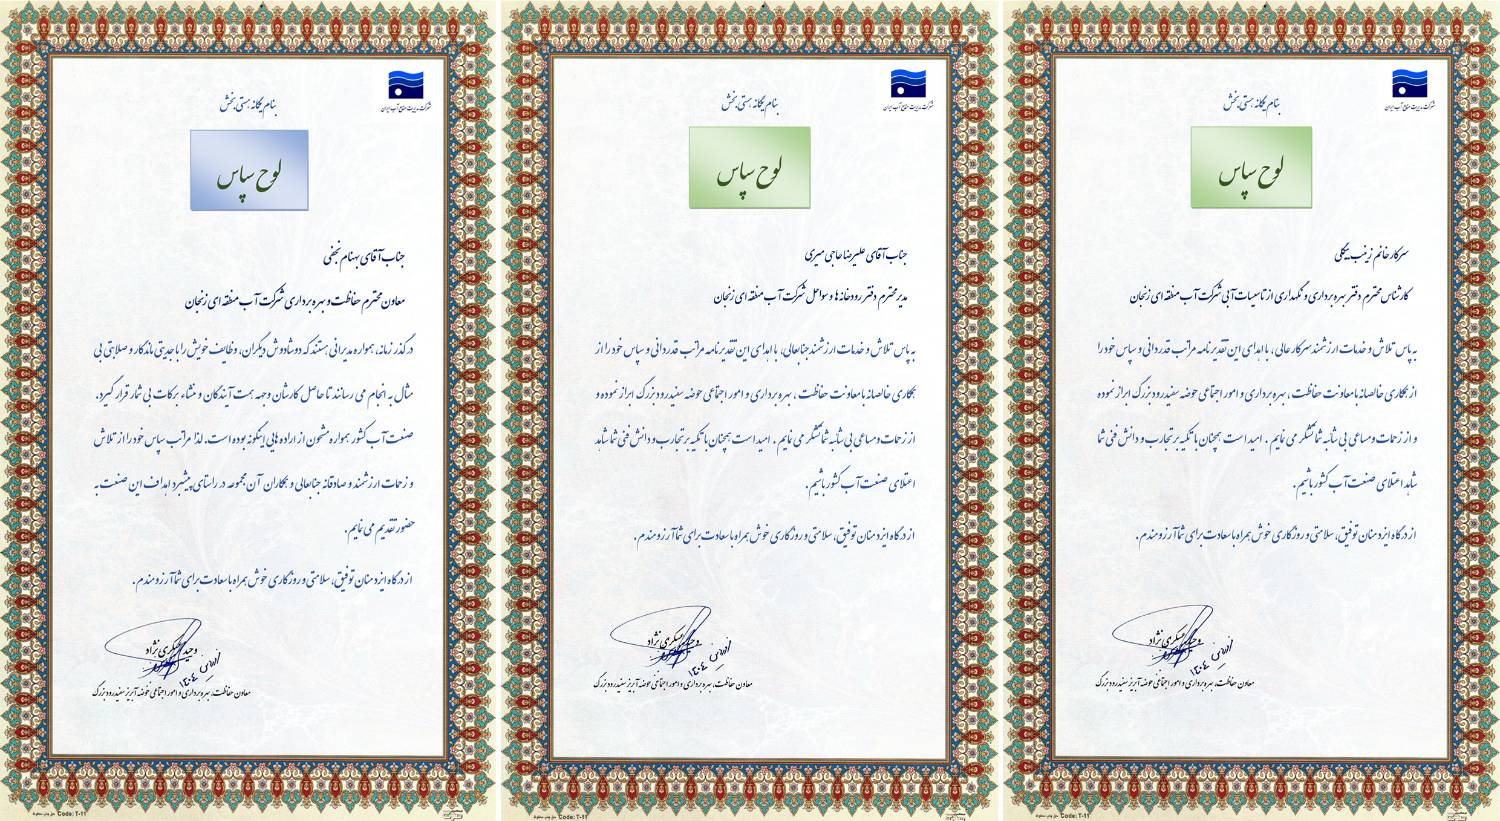 شرکت مدیریت منابع آب ایران
بنام یگانه هستی بخش
لوح سپاس
جناب آقای بهنام نجفی
معاون محترم حفاظت و بهره برداری شرکت آب منطقه ای زنجان
در گذر زمانه، همواره مدیرانی هستند که دوشادوش دیگران، وظایف خویش را با جدیتی ماندگار و صلابتی بی
مثال به انجام می رسانند تا حاصل کارشان وجهه همت آیندگان و منشاء برکات بی شمار قرار گیرد.
صنعت آب کشور همواره مشحون از اراده هایی اینگونه بوده است. لذا مراتب سپاس خود را از تلاش
و زحمات ارزشمند و صادقانه جنابعالی و همکاران آن مجموعه در راستای پیشبرد اهداف این صنعت به
حضور تقدیم می نمایم.
از درگاه ایزد منان توفیق، سلامتی و روزگاری خوش همراه با سعادت برای شما آرزومندم.
وحید عسکری نژاد
معاون حفاظت، بهره برداری و امور اجتماعی حوضه آبریز سفیدرود بزرگ
Code: T-11
شرکت مدیریت منابع آب ایران
بنام یگانه هستی بخش
لوح سپاس
جناب آقای علیرضا حاجی میری
مدیر محترم دفتر رودخانه ها و سواحل شرکت آب منطقه ای زنجان
به پاس تلاش و خدمات ارزشمند جنابعالی، با اهدای این تقدیرنامه مراتب قدردانی و سپاس خود را از
همکاری خالصانه با معاونت حفاظت، بهره برداری و امور اجتماعی حوضه سفیدرود بزرگ ابراز نموده و
از زحمات و مساعی بی شائبه شما تشکر می نمایم. امید است همچنان با تکیه بر تجارب و دانش فنی شما شاهد
اعتلای صنعت آب کشور باشیم.
از درگاه ایزد منان توفیق، سلامتی و روزگاری خوش همراه با سعادت برای شما آرزومندم.
وحید عسکری نژاد
۱۴۰۴
معاون حفاظت، بهره برداری و امور اجتماعی حوضه آبریز سفیدرود بزرگ
Code: T-11
شرکت مدیریت منابع آب ایران
بنام یگانه هستی بخش
لوح سپاس
سرکار خانم زینب بیگلی
کارشناس محترم دفتر بهره برداری و نگهداری از تاسیسات آبی شرکت آب منطقه ای زنجان
به پاس تلاش و خدمات ارزشمند سرکار عالی، با اهدای این تقدیرنامه مراتب قدردانی و سپاس خود را
از همکاری خالصانه با معاونت حفاظت، بهره برداری و امور اجتماعی حوضه سفیدرود بزرگ ابراز نموده
و از زحمات و مساعی بی شائبه شما تشکر می نمایم. امید است همچنان با تکیه بر تجارب و دانش فنی شما
شاهد اعتلای صنعت آب کشور باشیم.
از درگاه ایزد منان توفیق، سلامتی و روزگاری خوش همراه با سعادت برای شما آرزومندم.
وحید عسکری نژاد
۱۴۰۴
معاون حفاظت، بهره برداری و امور اجتماعی حوضه آبریز سفیدرود بزرگ
Code: T-11